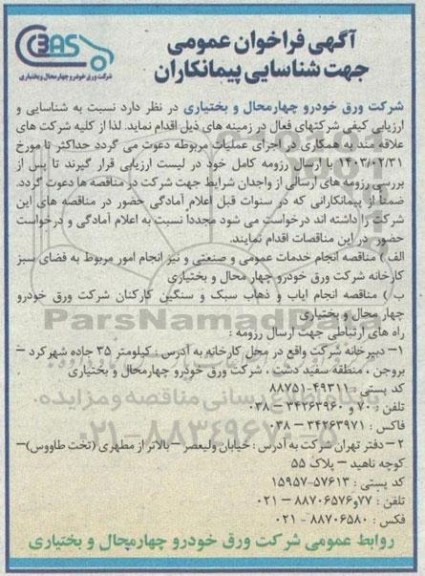 آگهی فراخوان عمومی
جهت شناسایی پیمانکاران
C3AS
شرکت ورق خودرو چهارمحال و بختیاری
شرکت ورق خودرو چهارمحال و بختیاری در نظر دارد نسبت به شناسایی و
ارزیابی کیفی شرکتهای فعال در زمینه های ذیل اقدام نماید. لذا از کلیه شرکت های
علاقه مند به همکاری در اجرای عملیات مربوطه دعوت می گردد حداکثر تا مورخ
۱۴۰۳/۰۲/۳۱ با ارسال رزومه کامل خود در لیست ارزیابی قرار گیرند تا پس از
بررسی رزومه های ارسالی از واجدان شرایط جهت شرکت در مناقصه ها دعوت گردد.
ضمناً از پیمانکارانی که در سنوات قبل اعلام آمادگی حضور در مناقصه های این
شرکت را داشته اند درخواست می شود مجدداً نسبت به اعلام آمادگی و درخواست
حضور در این مناقصات اقدام نمایند.
الف ) مناقصه انجام خدمات عمومی و صنعتی و نیز انجام امور مربوط به فضای سبز
کارخانه شرکت ورق خودرو چهار محال و بختیاری
ب ) مناقصه انجام ایاب و ذهاب سبک و سنگین کارکنان شرکت ورق خودرو
چهار محال و بختیاری
راه های ارتباطی جهت ارسال رزومه :
۱– دبیرخانه شرکت واقع در محل کارخانه به آدرس : کیلومتر ۳۵ جاده شهرکرد –
بروجن ، منطقه سفید دشت ، شرکت ورق خودرو چهارمحال و بختیاری
کد پستی : ۴۹۳۱۱–۸۸۷۵۱
تلفن : ۷۰ و ۳۴۲۶۳۹۶۰ – ۰۳۸
فاکس : ۳۴۲۶۳۹۷۱ – ۰۳۸
۲– دفتر تهران شرکت به آدرس : خیابان ولیعصر – بالاتر از مطهری (تخت طاووس)–
کوچه ناهید – پلاک ۵۵
کد پستی : ۵۷۶۱۳–۱۵۹۵۷
تلفن : ۷۷و۸۸۷۰۶۵۷۶ – ۰۲۱
فکس : ۸۸۷۰۶۵۸۰ - ۰۲۱
روابط عمومی شرکت ورق خودرو چهارمحال و بختیاری
ParsNamadData
پایگاه اطلاع رسانی مناقصه و مزایده
۰۲۱-۸۸۳۴۹۶۷۰-۵